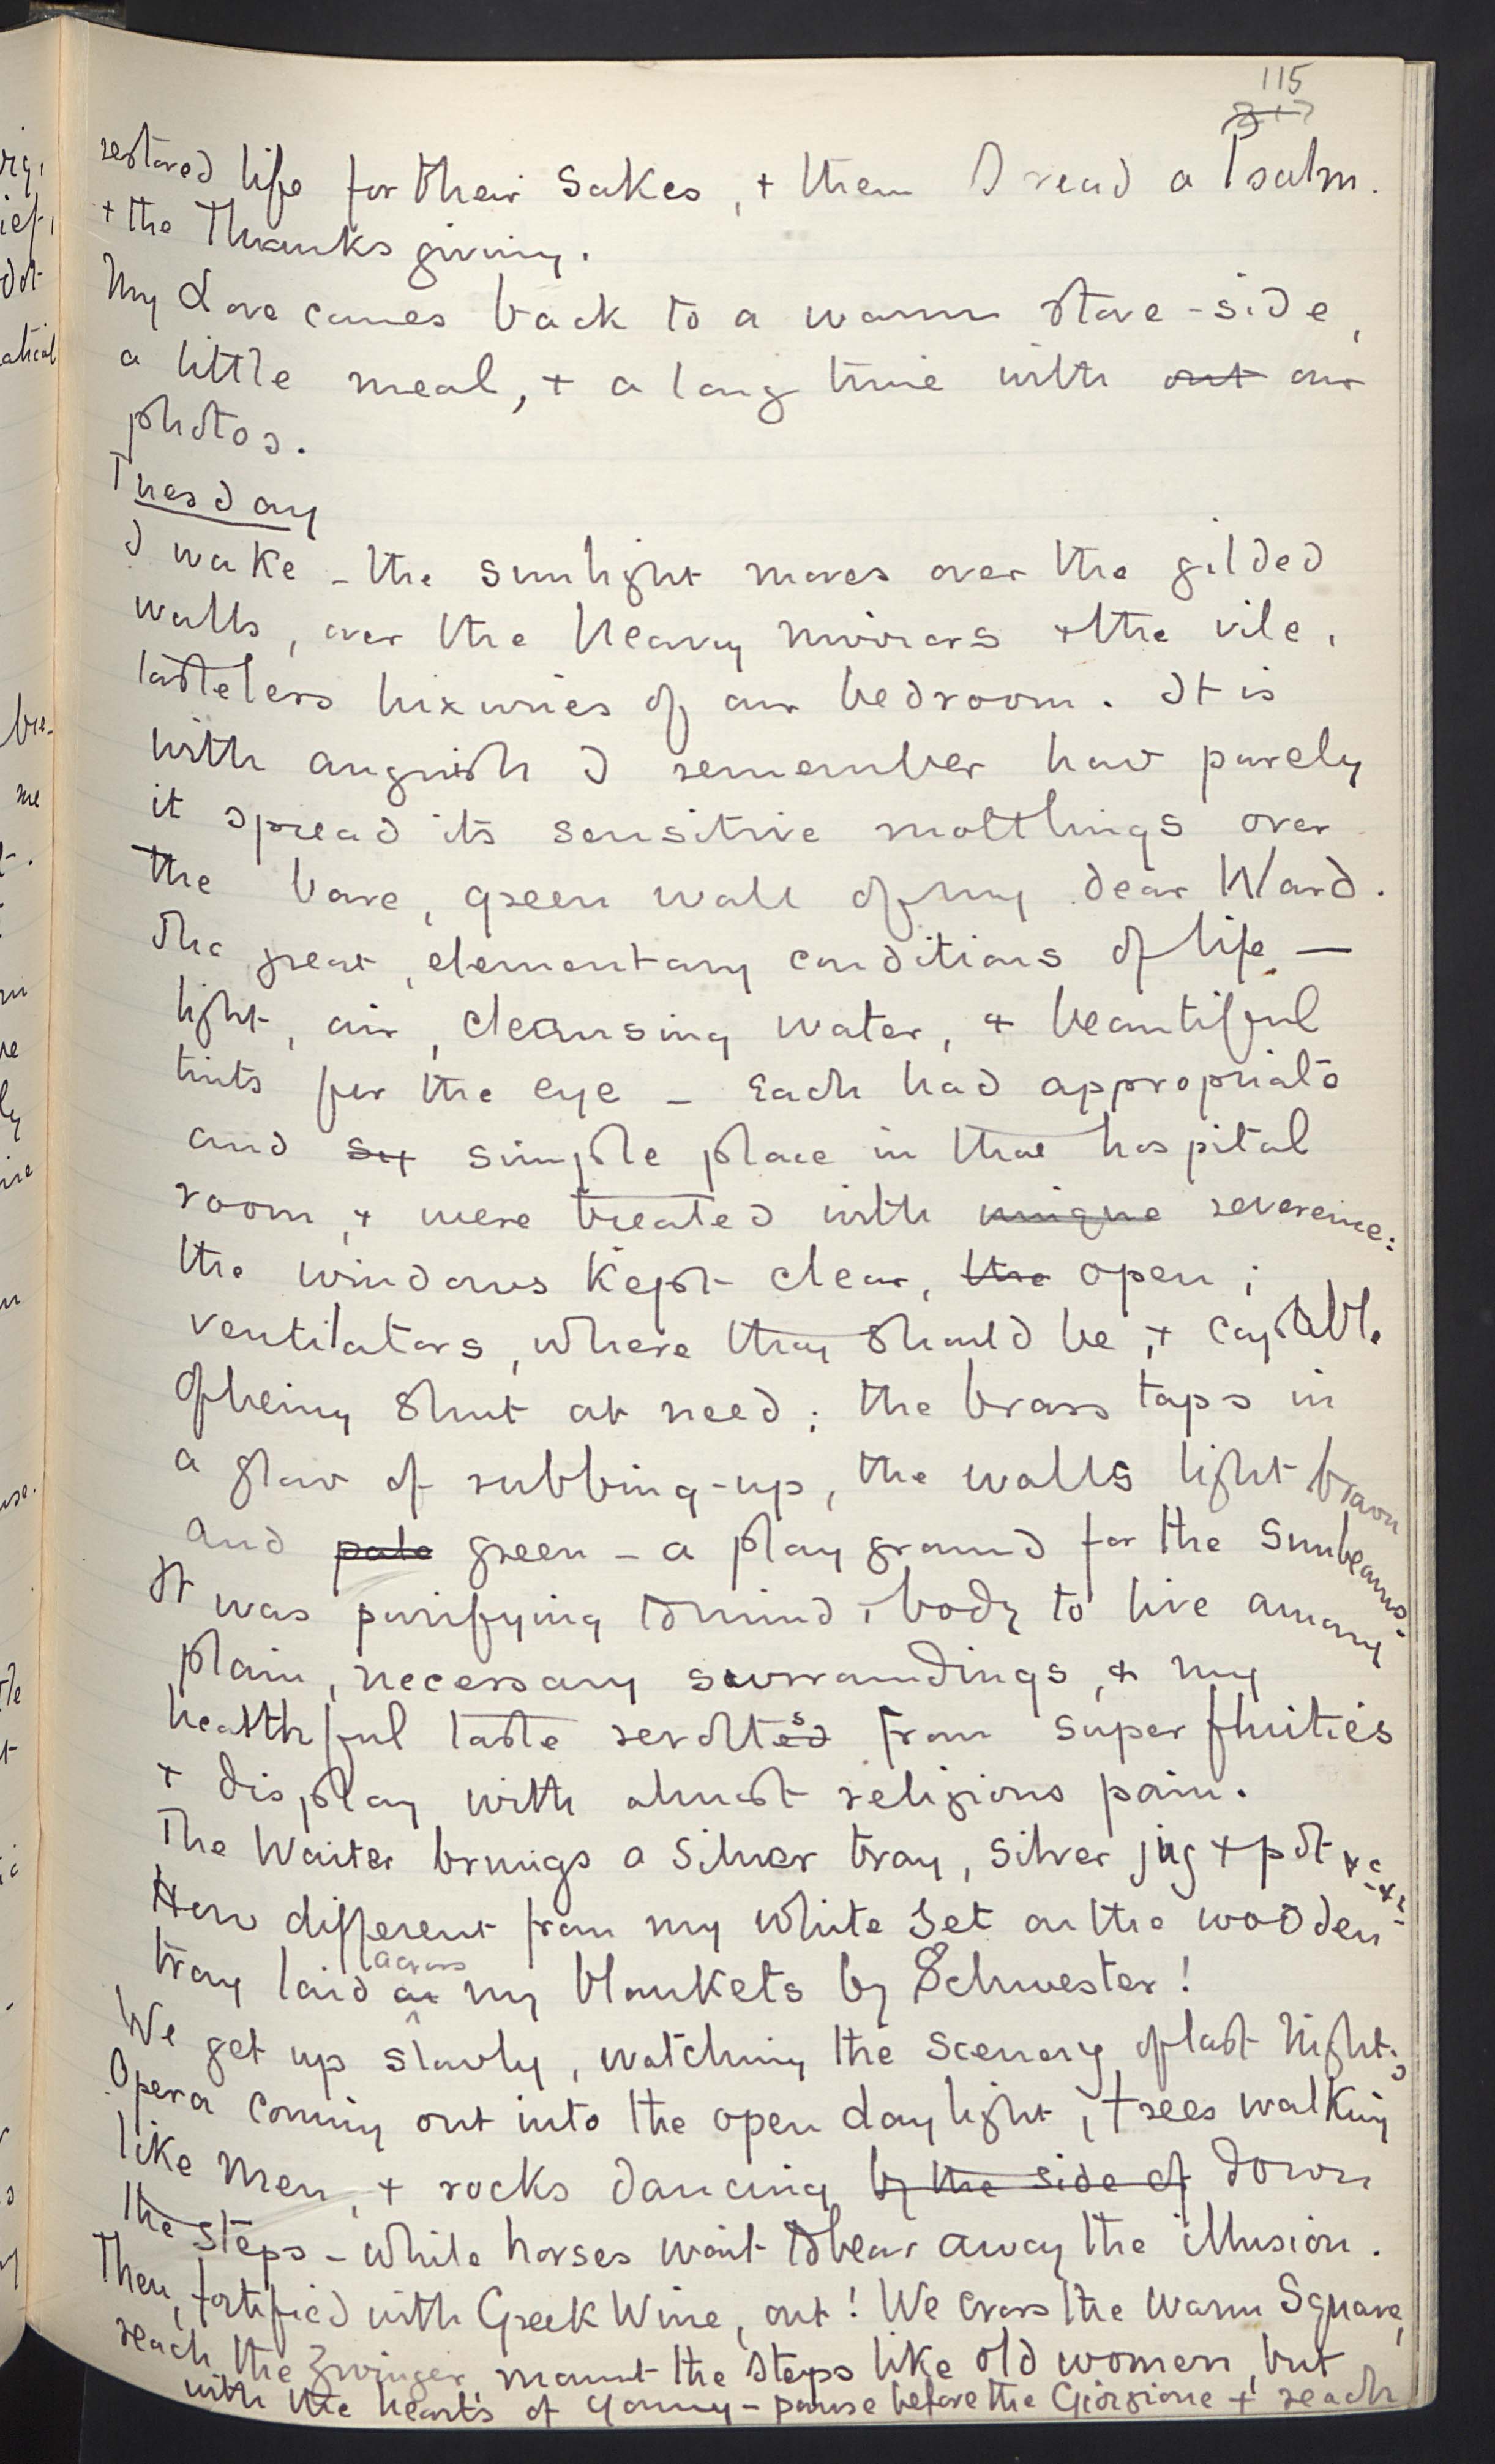 115
restored life for their sakes, + then I read a Psalm.
+ the Thanksgiving.
My Love comes back to a warm stove-side,
a little meal, + a long time with out our
photos.
Tuesday
I wake - the sunlight moves over the gilded
walls, over the heavy mirrors + the vile,
tasteless luxuries of our bedroom. It is
with anguish I remember how purely
it spread its sensitive mottlings over
the bare, green wall of my dear Ward.
The great, elementary conditions of life —
light, air, cleansing water, + beautiful
tints for the eye - Each had appropriate
and sy simple place in that hospital
room, + were treated with unique reverence:
the windows kept clear, the open;
ventilators, where they should be, + capable
of being shut at need; the brass taps in
a glow of rubbing-up, the walls light brown
and pale green - a play ground for the Sunbeams.
It was purifying to mind, body to live among
plain, necessary surroundings, + my
healthful taste revolteds from superfluities
+ display with almost religious pain.
The Waiter brings a silver tray, silver jug + pot +c +c
How different from my white set on the wooden
tray laid on across my blankets by Schwester!
We get up slowly, watching the scenery of last Night's
Opera coming out into the open daylight, trees walking
like Men, + rocks dancing by the side of down
the steps - while horses wait to bear away the illusion.
Then, fortified with Greek Wine, out! We cross the warm Square,
reach the Zwinger, mount the steps like old women, but
with the hearts of young - pause before the Giorgione + reach